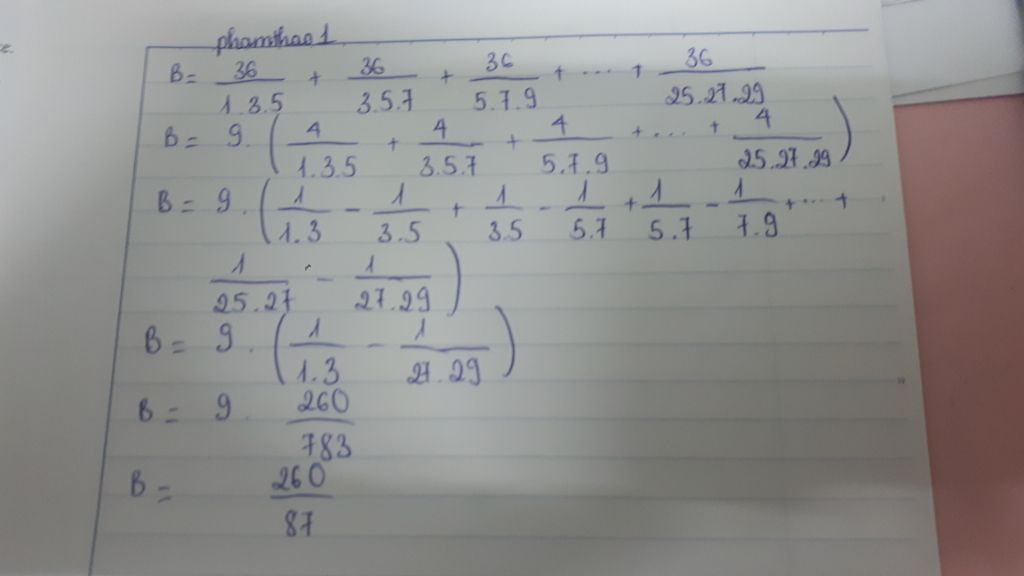 phamthao1
B = 36/1.3.5 + 36/3.5.7 + 36/5.7.9 + ... + 36/25.27.29
B = 9. ( 4/1.3.5 + 4/3.5.7 + 4/5.7.9 + ... + 4/25.27.29 )
B = 9. ( 1/1.3 - 1/3.5 + 1/3.5 - 1/5.7 + 1/5.7 - 1/7.9 + ... +
1/25.27 - 1/27.29 )
B = 9. ( 1/1.3 - 1/27.29 )
B = 9. 260/783
B = 260/87